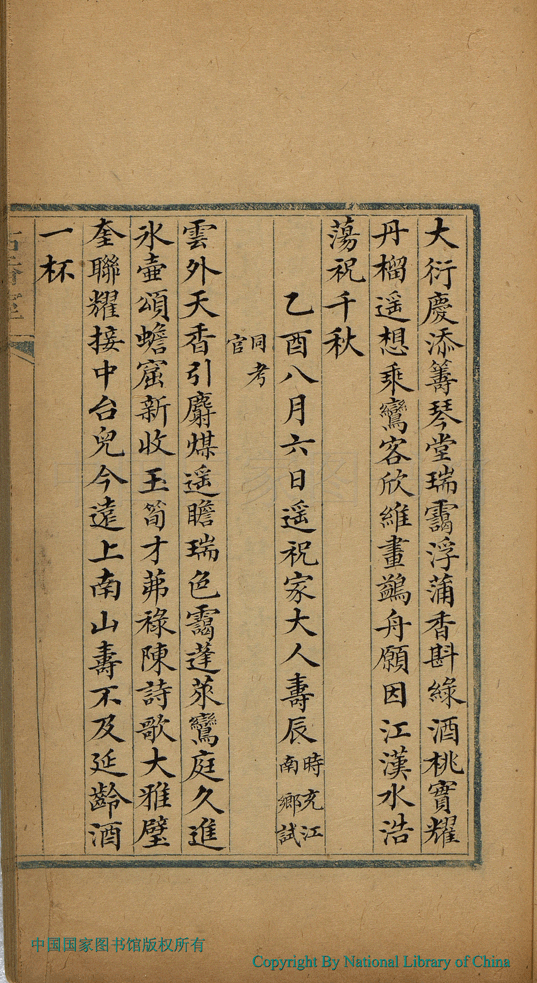 大衍慶添籌琴堂瑞靄浮蒲香斟綠酒桃實耀
丹榴遥想乘鸞客欣維畫鷁舟願因江漢水浩
蕩祝千秋
乙酉八月六日遥祝家大人壽辰時充江南鄉試
同考官
雲外天香引麝煤遥瞻瑞色靄蓬萊鸞庭久進
氷壺頌蟾窟新收玉筍才茀祿陳詩歌大雅璧
奎聯耀接中台兕今遠上南山壽不及延齡酒
一杯
中国国家图书馆版权所有
Copyright By National Library of China